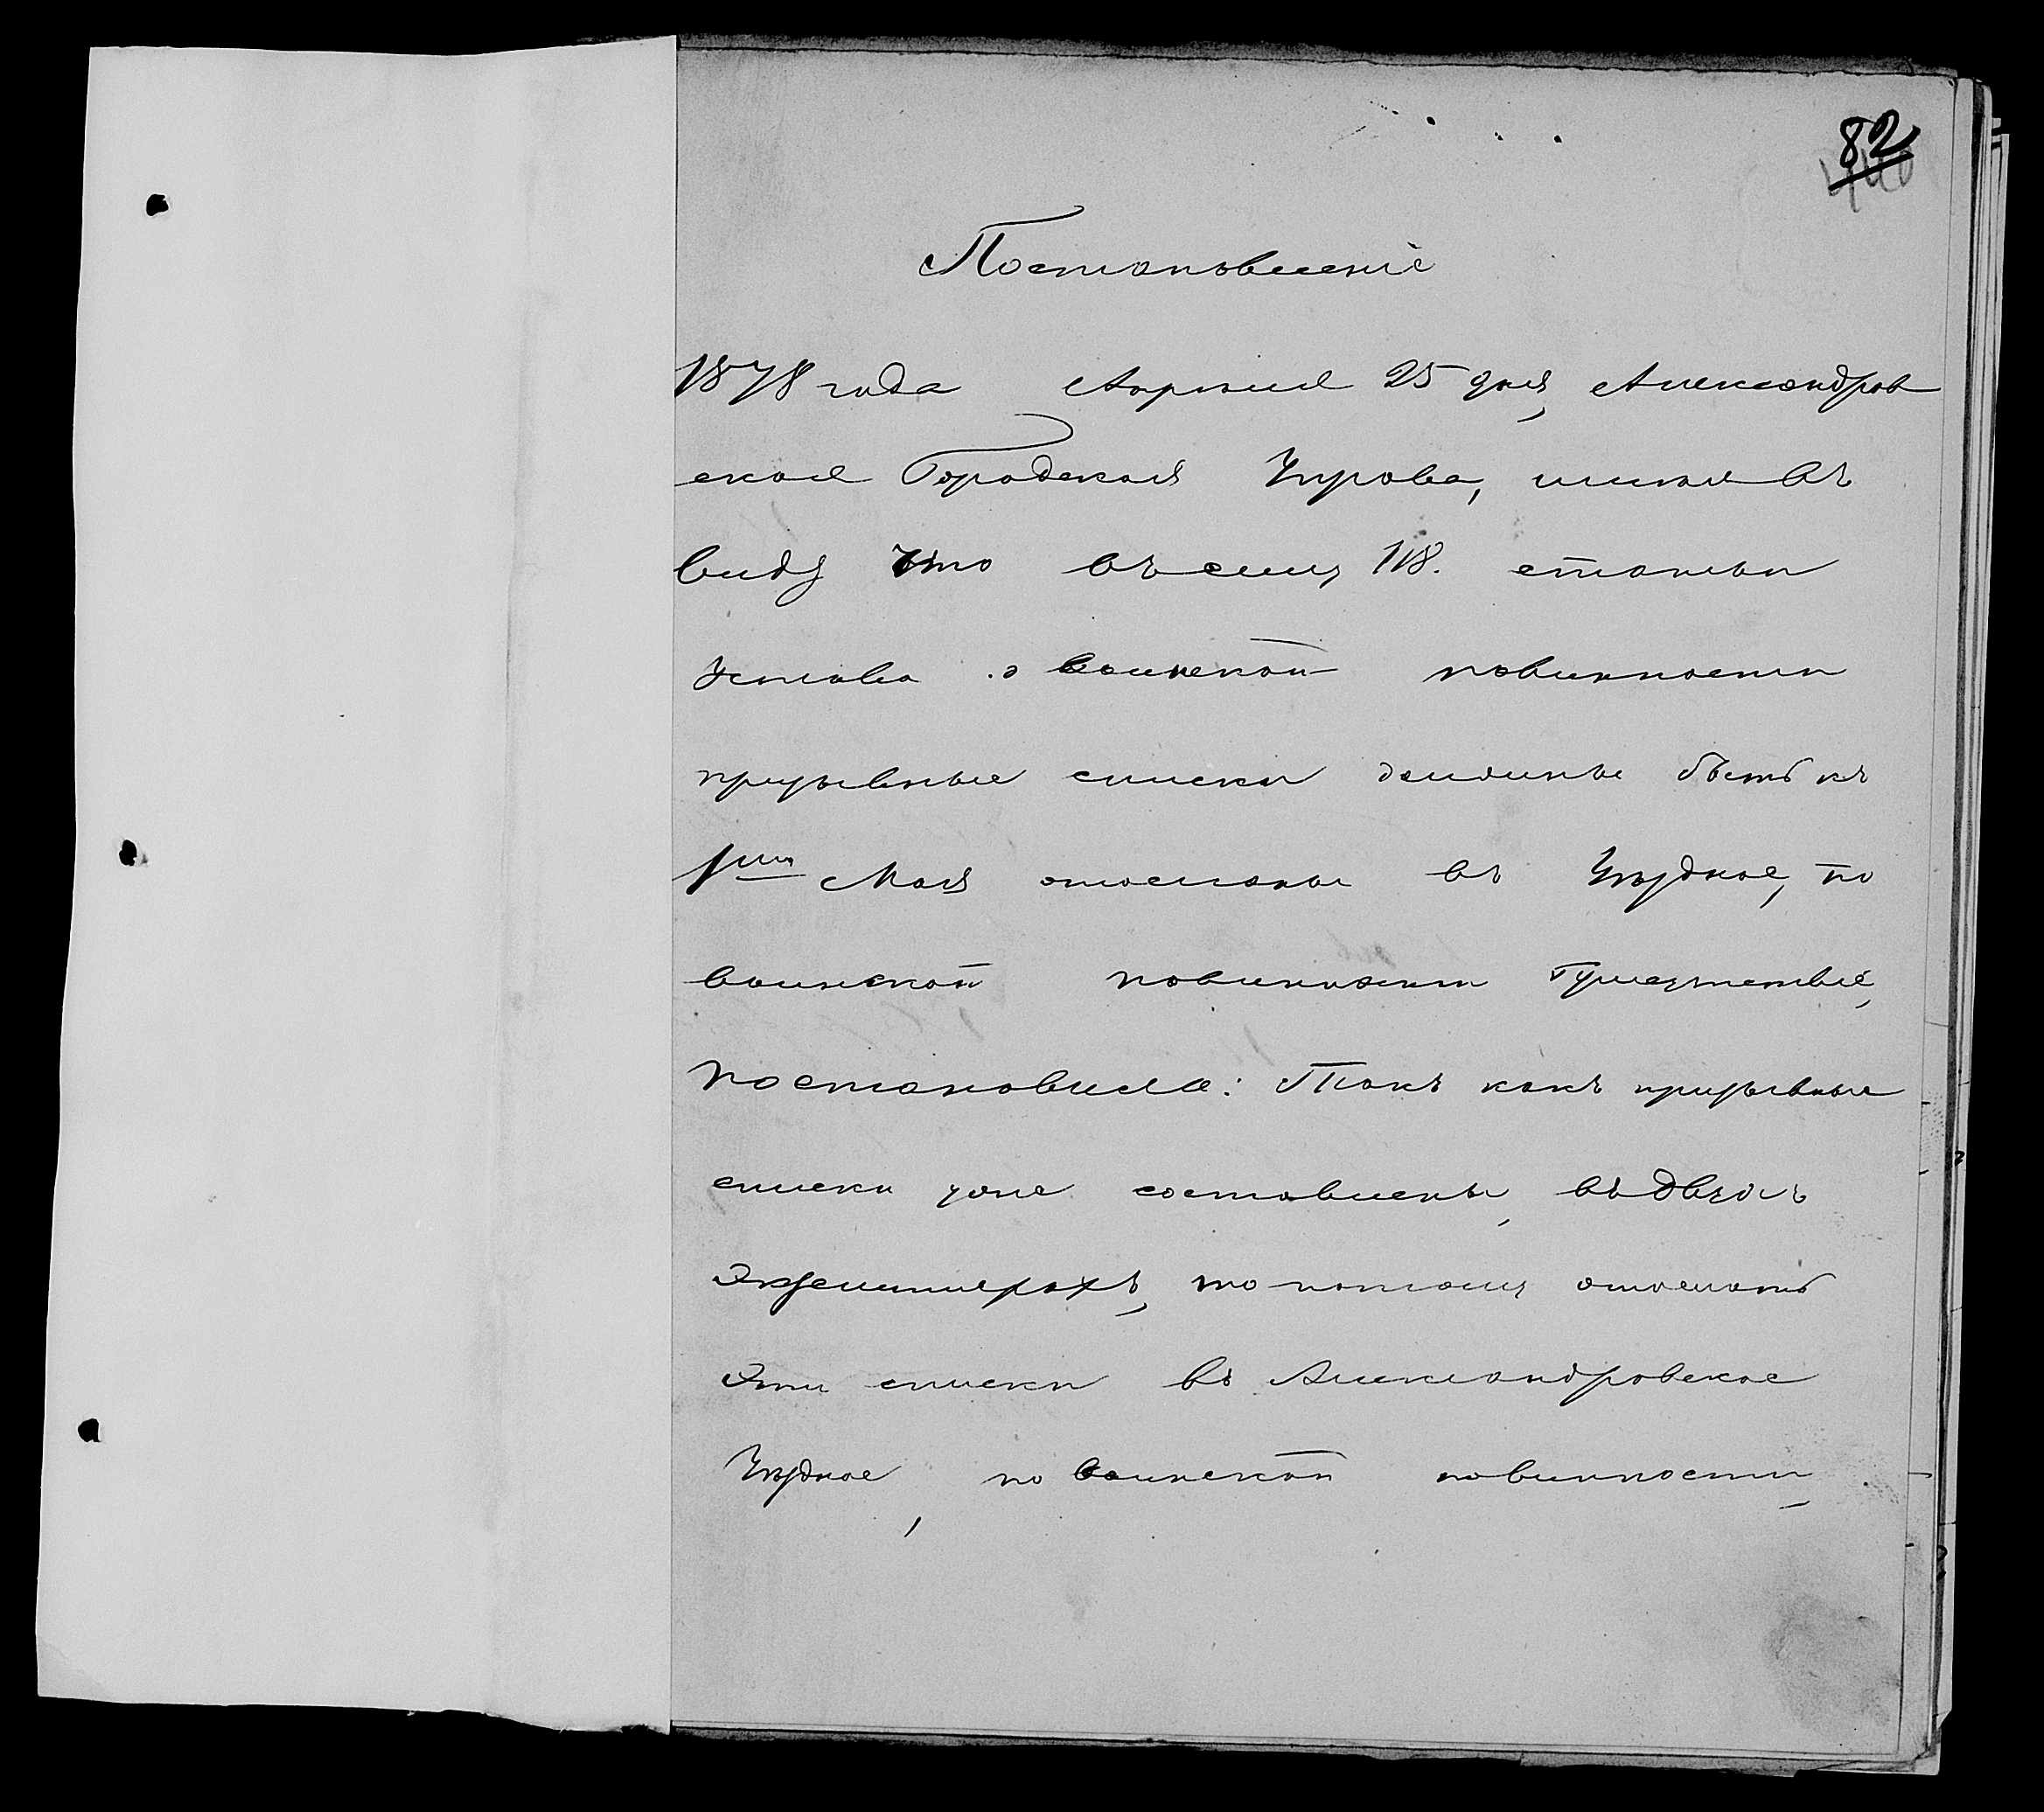 82
Постановленіе
1878 года Апрѣля 25 дня, Александров
ская Городская Управа, имѣя въ
виду что въ силу 118. статьи
Устава о воинской повинности
призывные списки должны быть къ
1му Мая отосланы въ Уѣздное, по
воинской повинности Присутствіе,
постановила: Такъ какъ призывные
списки уже составлены, въ двухъ
Экземплярахъ, то потому отослать
Эти списки въ Александровское
Уѣздное, по воинской повинности,